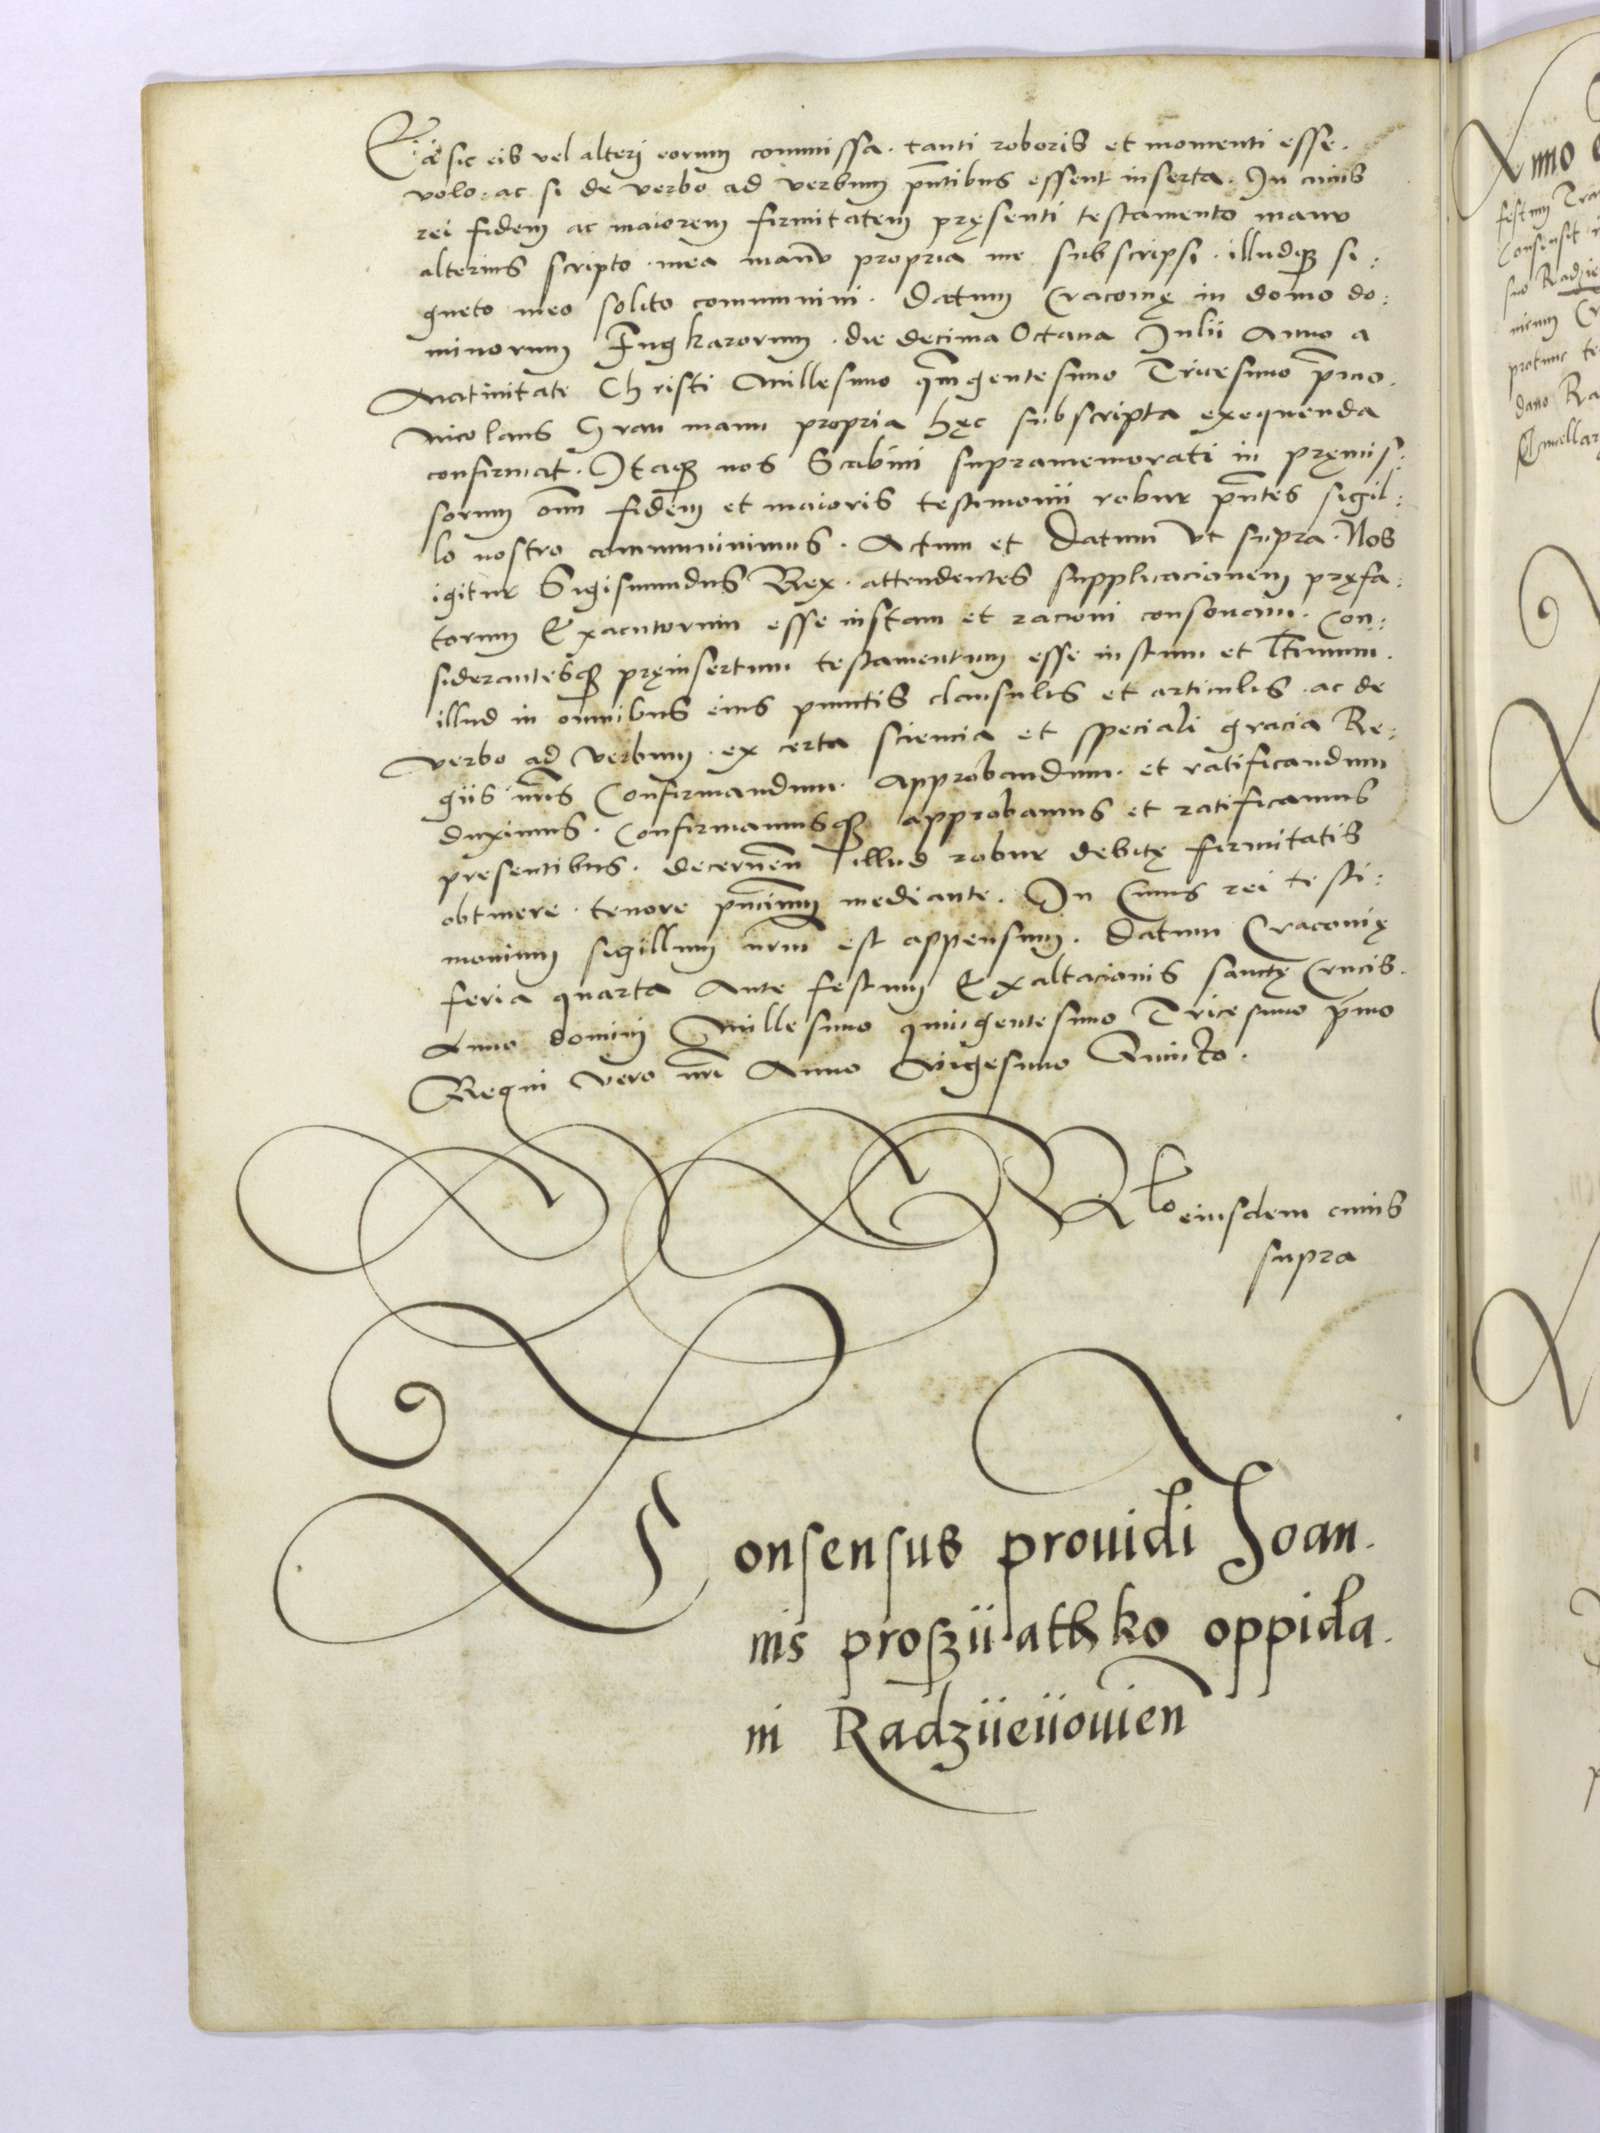 Et sic eis vel alteri eorum commissa. tanti roboris et momenti esse.
volo. ac si de verbo ad verbum pntibus essent inserta. In cuius
rei fidem ac maiorem firmitatem pręsenti testamento manu
alterius scripto. mea manu propria me subscripsi. illudq si:
gneto meo solito communini. Datum Cracouię in domo do:
minorum Fugkarorum. die decima Octaua Julii Anno a
Natiuitate Christi Millesimo qmgentesimo Tricesimo pmo.
Nicolaus Grau manu propria hęc subscripta exequenda
confirmat. Itaq nos Scabini supramemorati in pręmis:
sorum omm fidem et maioris testimonii robur pntes sigil:
lo nostro communiuimus. Actum et Datum vt supra. Nos
igitur Sigismundus Rex. attendentes supplicacionem pręfa:
torum Exacutorum esse iustam et racioni consonam. Con:
siderantesq pręinsertum testamentum esse iustum et ltimum.
illud in omnibus eius punctis clausulis et articulis. ac de
verbo ad verbum. ex certa sciencia et speciali gracia Re:
giis nris Confirmandum. Approbandum. et ratificandum
duximus. Confirmamusq approbamus et ratificamus
presentibus. decernen illud robur debitę firmitatis
obtinere. tenore pncium mediante. In Cuius rei testi:
monium sigillum nrm est appensum. Datum Cracouię
feria quarta Ante festum Exaltacionis sanctę Crucis.
Anno domini Millesimo quingentesimo Tricesimo pmo
Regni vero nri Anno Vigesimo Quinto.
Rlo eiusdem cuius
supra
Consensus prouidi Joan.
nis proszÿathko oppida.
ni Radzÿeÿouien